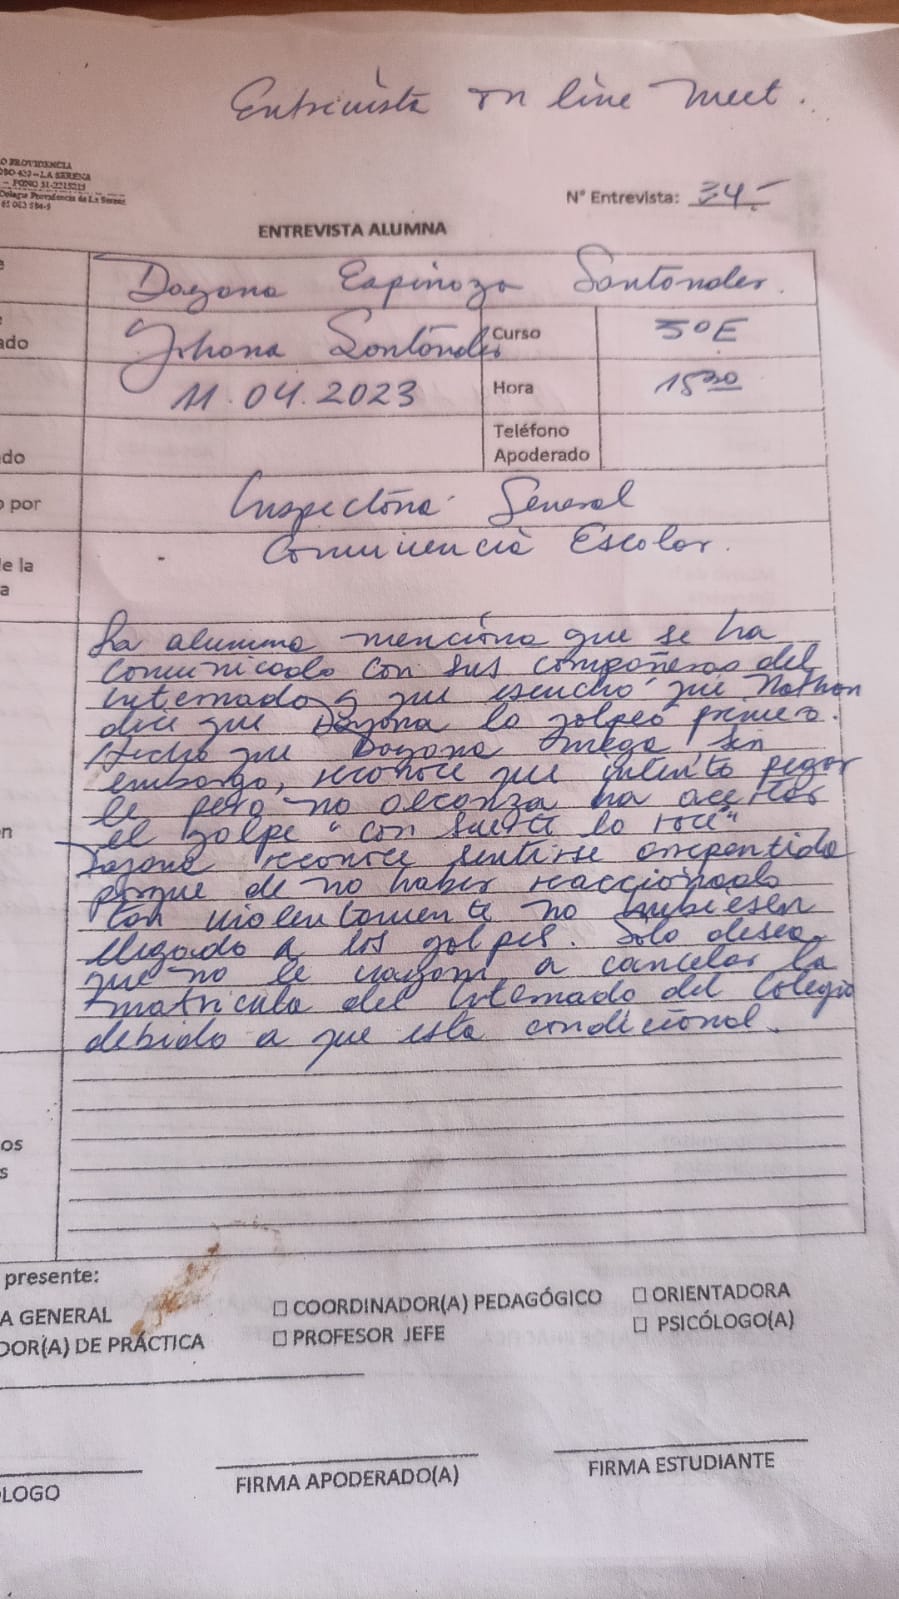 Entrevista on line Meet.
O PROVIDENCIA
LA SERENA
FONO 51-2215215
Colegio Providencia de La Serena
N° Entrevista: 34.-
ENTREVISTA ALUMNA
e
Dayana Espinoza Santander.
e
ado
Johana Santander
Curso
5°E
11.04.2023
Hora
15:30
do
Teléfono
Apoderado
o por
Inspectoria General
e la
a
- Convivencia Escolar.
La alumna menciona que se ha
comunicado con sus compañeras del
internado y que escuchó que Nathan
dice que Dayana lo golpeó primero.
Hecho que Dayana niega, sin
embargo, reconoce que intento pegar
le pero no alcanza ha acertar
el golpe "con suerte lo rocé"
Dayana reconoce sentirse arrepentida
porque de no haber reaccionado
tan violentamente no hubiesen
llegado a los golpes. Solo desea
que no le vayan a cancelar la
matricula del Internado del Colegio
debido a que esta condicional.
ón
os
s
presente:
A GENERAL
☐ COORDINADOR(A) PEDAGÓGICO
☐ ORIENTADORA
DOR(A) DE PRÁCTICA
☐ PROFESOR JEFE
☐ PSICÓLOGO(A)
ÓLOGO
FIRMA APODERADO(A)
FIRMA ESTUDIANTE